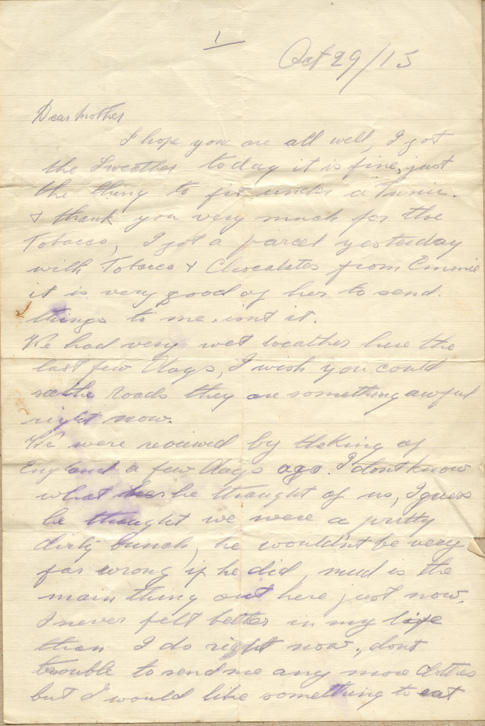 1
Oct 29/15
Dear Mother
I hope you are all well, I got
the Sweather today it is fine, just
the thing to fit under a tunic.
I thank you very much for the
Tobacco, I got a parcel yesterday
with Tobacco & Chocolates from Emmie
it is very good of her to send
things to me, isnt it.
We had very wet weather here the
last few days, I wish you could
see the Roads they are something awful
right now.
We were reviewed by the King of
England a few days ago. I dont know
what he thought of us, I guess
he thought we were a pretty
dirty bunch, he wouldnt be very
far wrong if he did mud is the
main thing out here just now.
I never felt better in my life
than I do right now, dont
trouble to send me any more clothes
but I would like something to eat